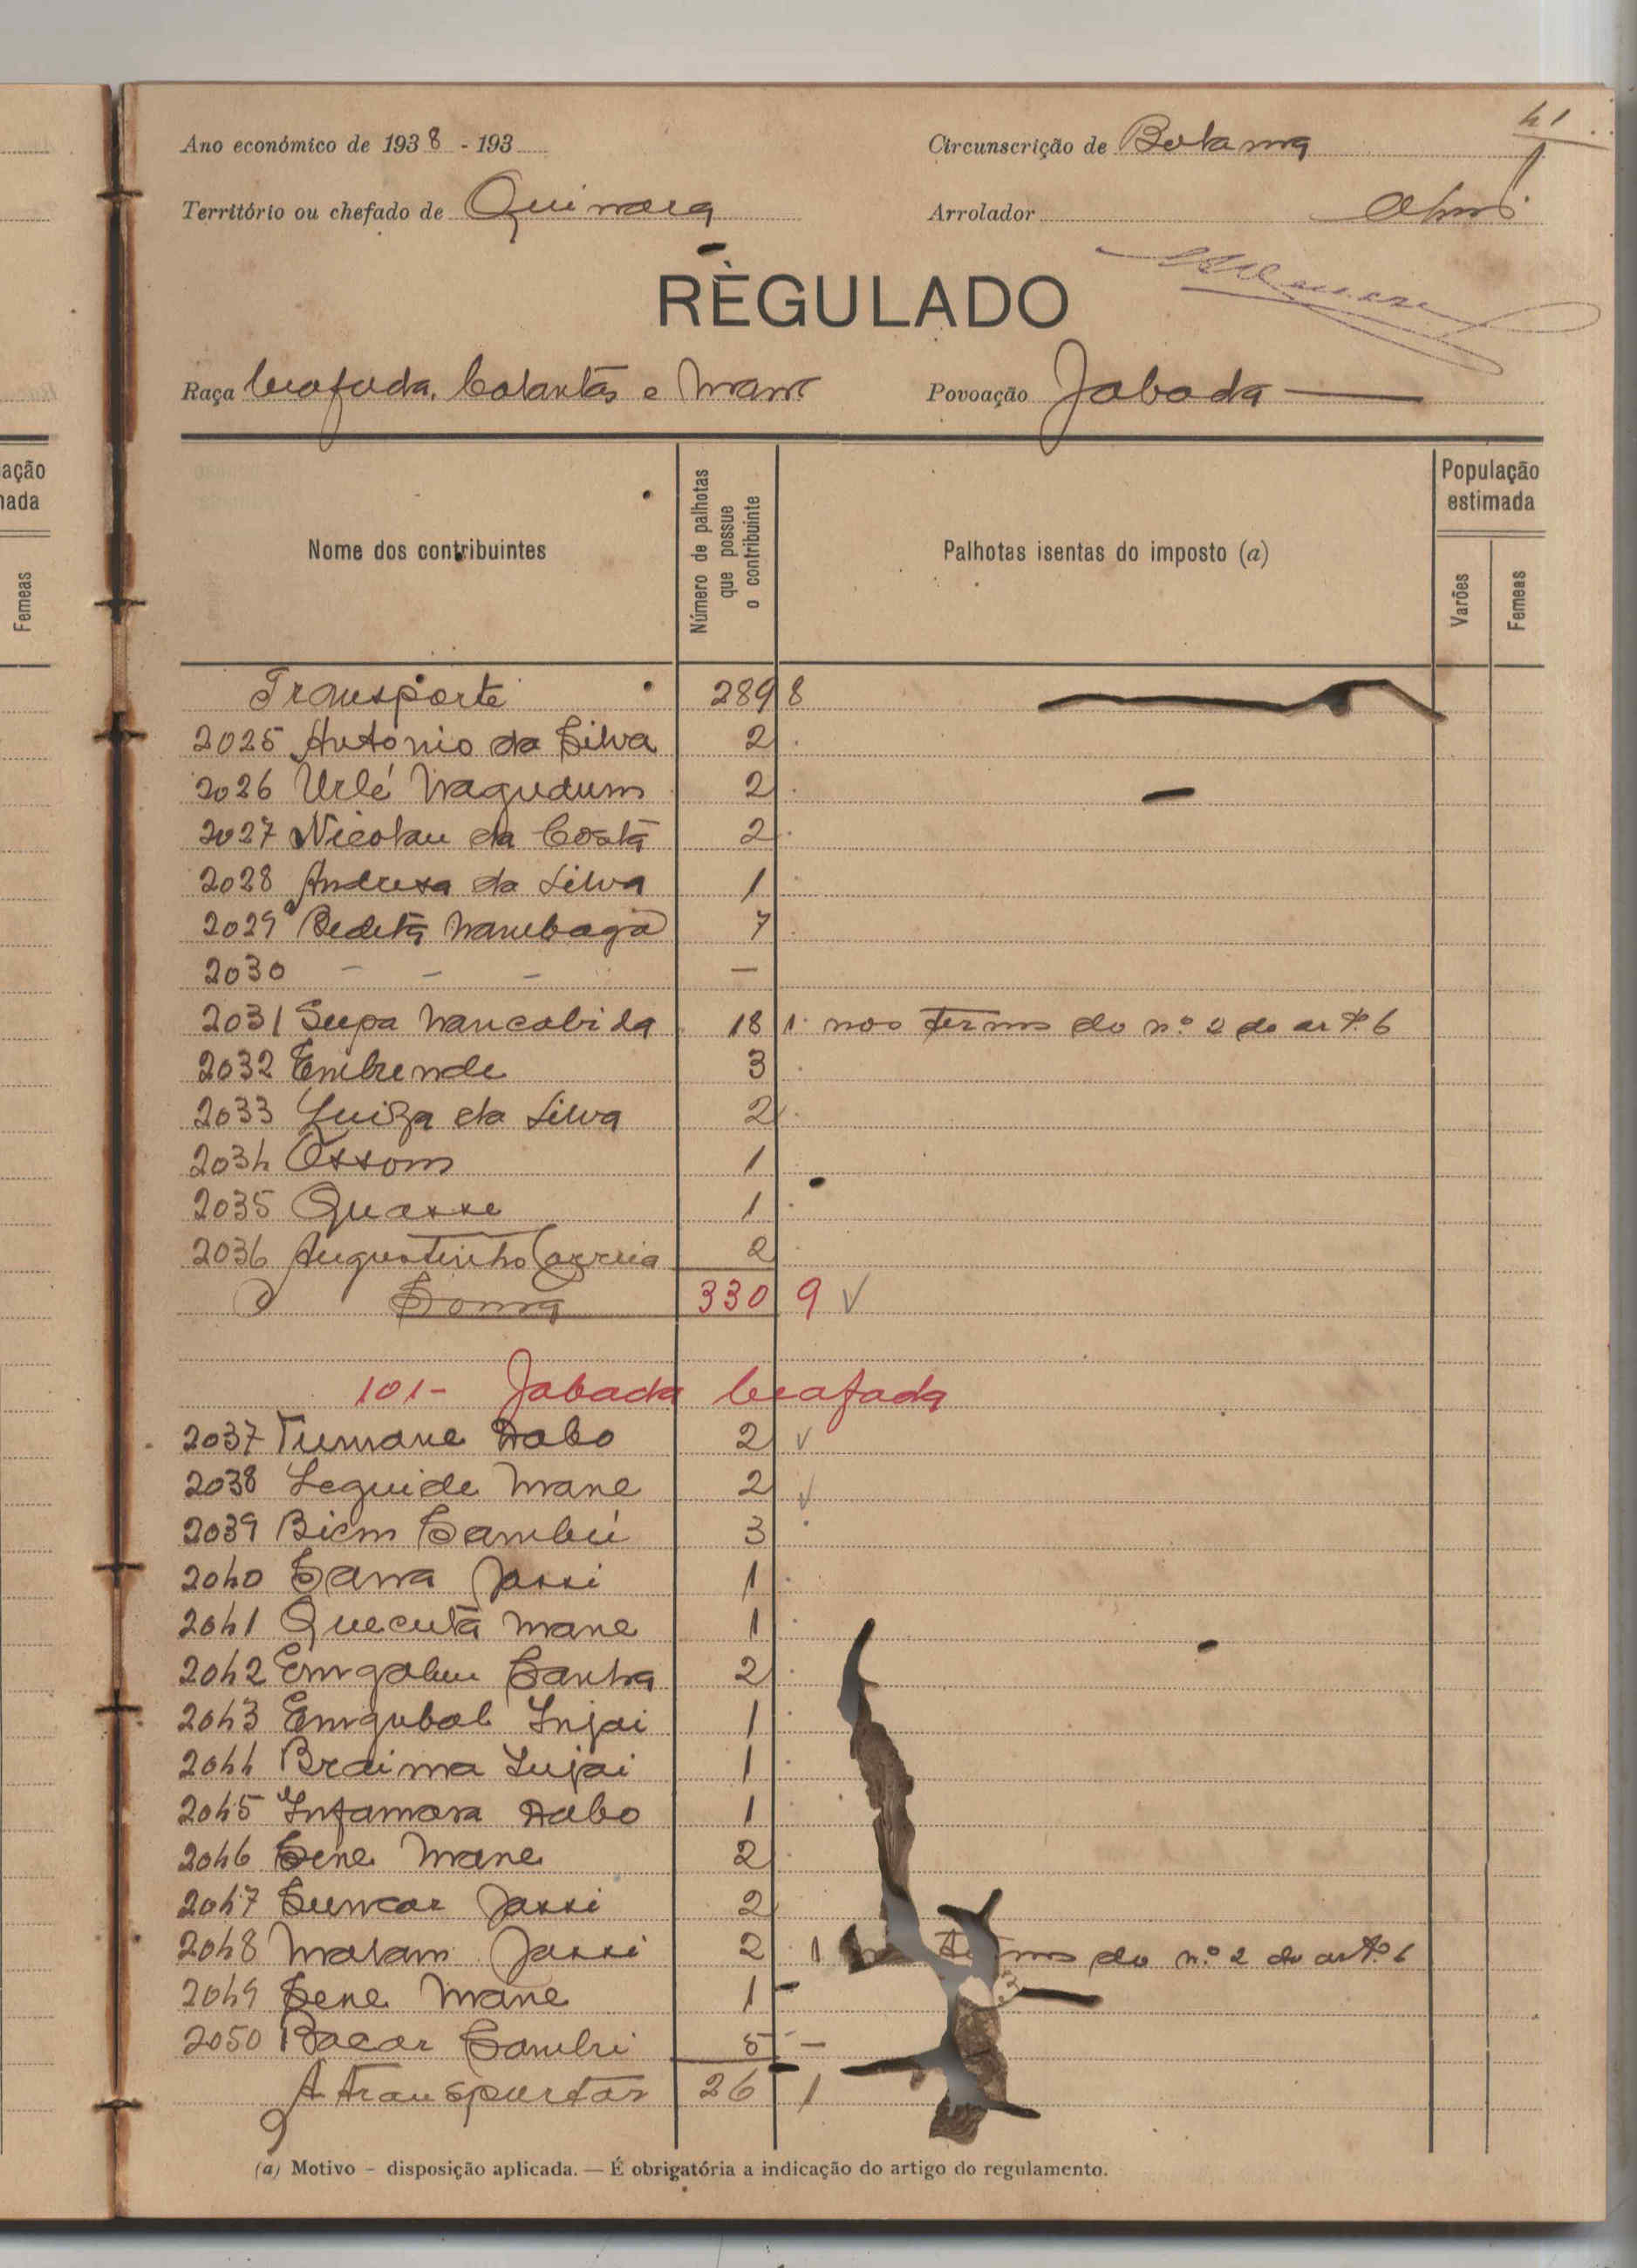 41
Ano económico de 1938 - 193
Circunscrição de Bolama
Território ou chefado de Quinara
Arrolador
REGULADO
Raça beafada, balantas e
Povoação Jabada
ação
nada
Femeas
Nome dos contribuintes
Número de palhotas que possue o contribuinte
Palhotas isentas do imposto (a)
População estimada
Varões
Femeas
Transporte 289 8
2025 António da Silva 2
2026 Urlé Nagudum 2
2027 Nicolau da Costa 2
2028 Andreza da Silva 1
2029 Bedetã 7
2030 - - - -
2031 Supa Mancabida 18 1 nos termos do nº 2 do artº 6
2032 Embunde 3
2033 Luiza da Silva 2
2034 Ossom 1
2035 Quasse 1
2036 Augustinho Correia 2
Soma 330 9
101 - Jabada beafada
2037 Tumane Dabo 2
2038 Leguide Mane 2
2039 Biem Sambú 3
2040 Sana Jassi 1
2041 Quecutã Mane 1
2042 Emgaleu Sanha 2
2043 Emgubal Injai 1
2044 Braima Injai 1
2045 Infamara Dabo 1
2046 Sene Mane 2
2047 Suncar Jassi 2
2048 Malam Jassi 2 1 termos do nº 2 do artº 6
2049 Sene Mane 1 -
2050 Bacar Sambu 5 -
A transportar 26 1
(a) Motivo - disposição aplicada. — É obrigatória a indicação do artigo do regulamento.